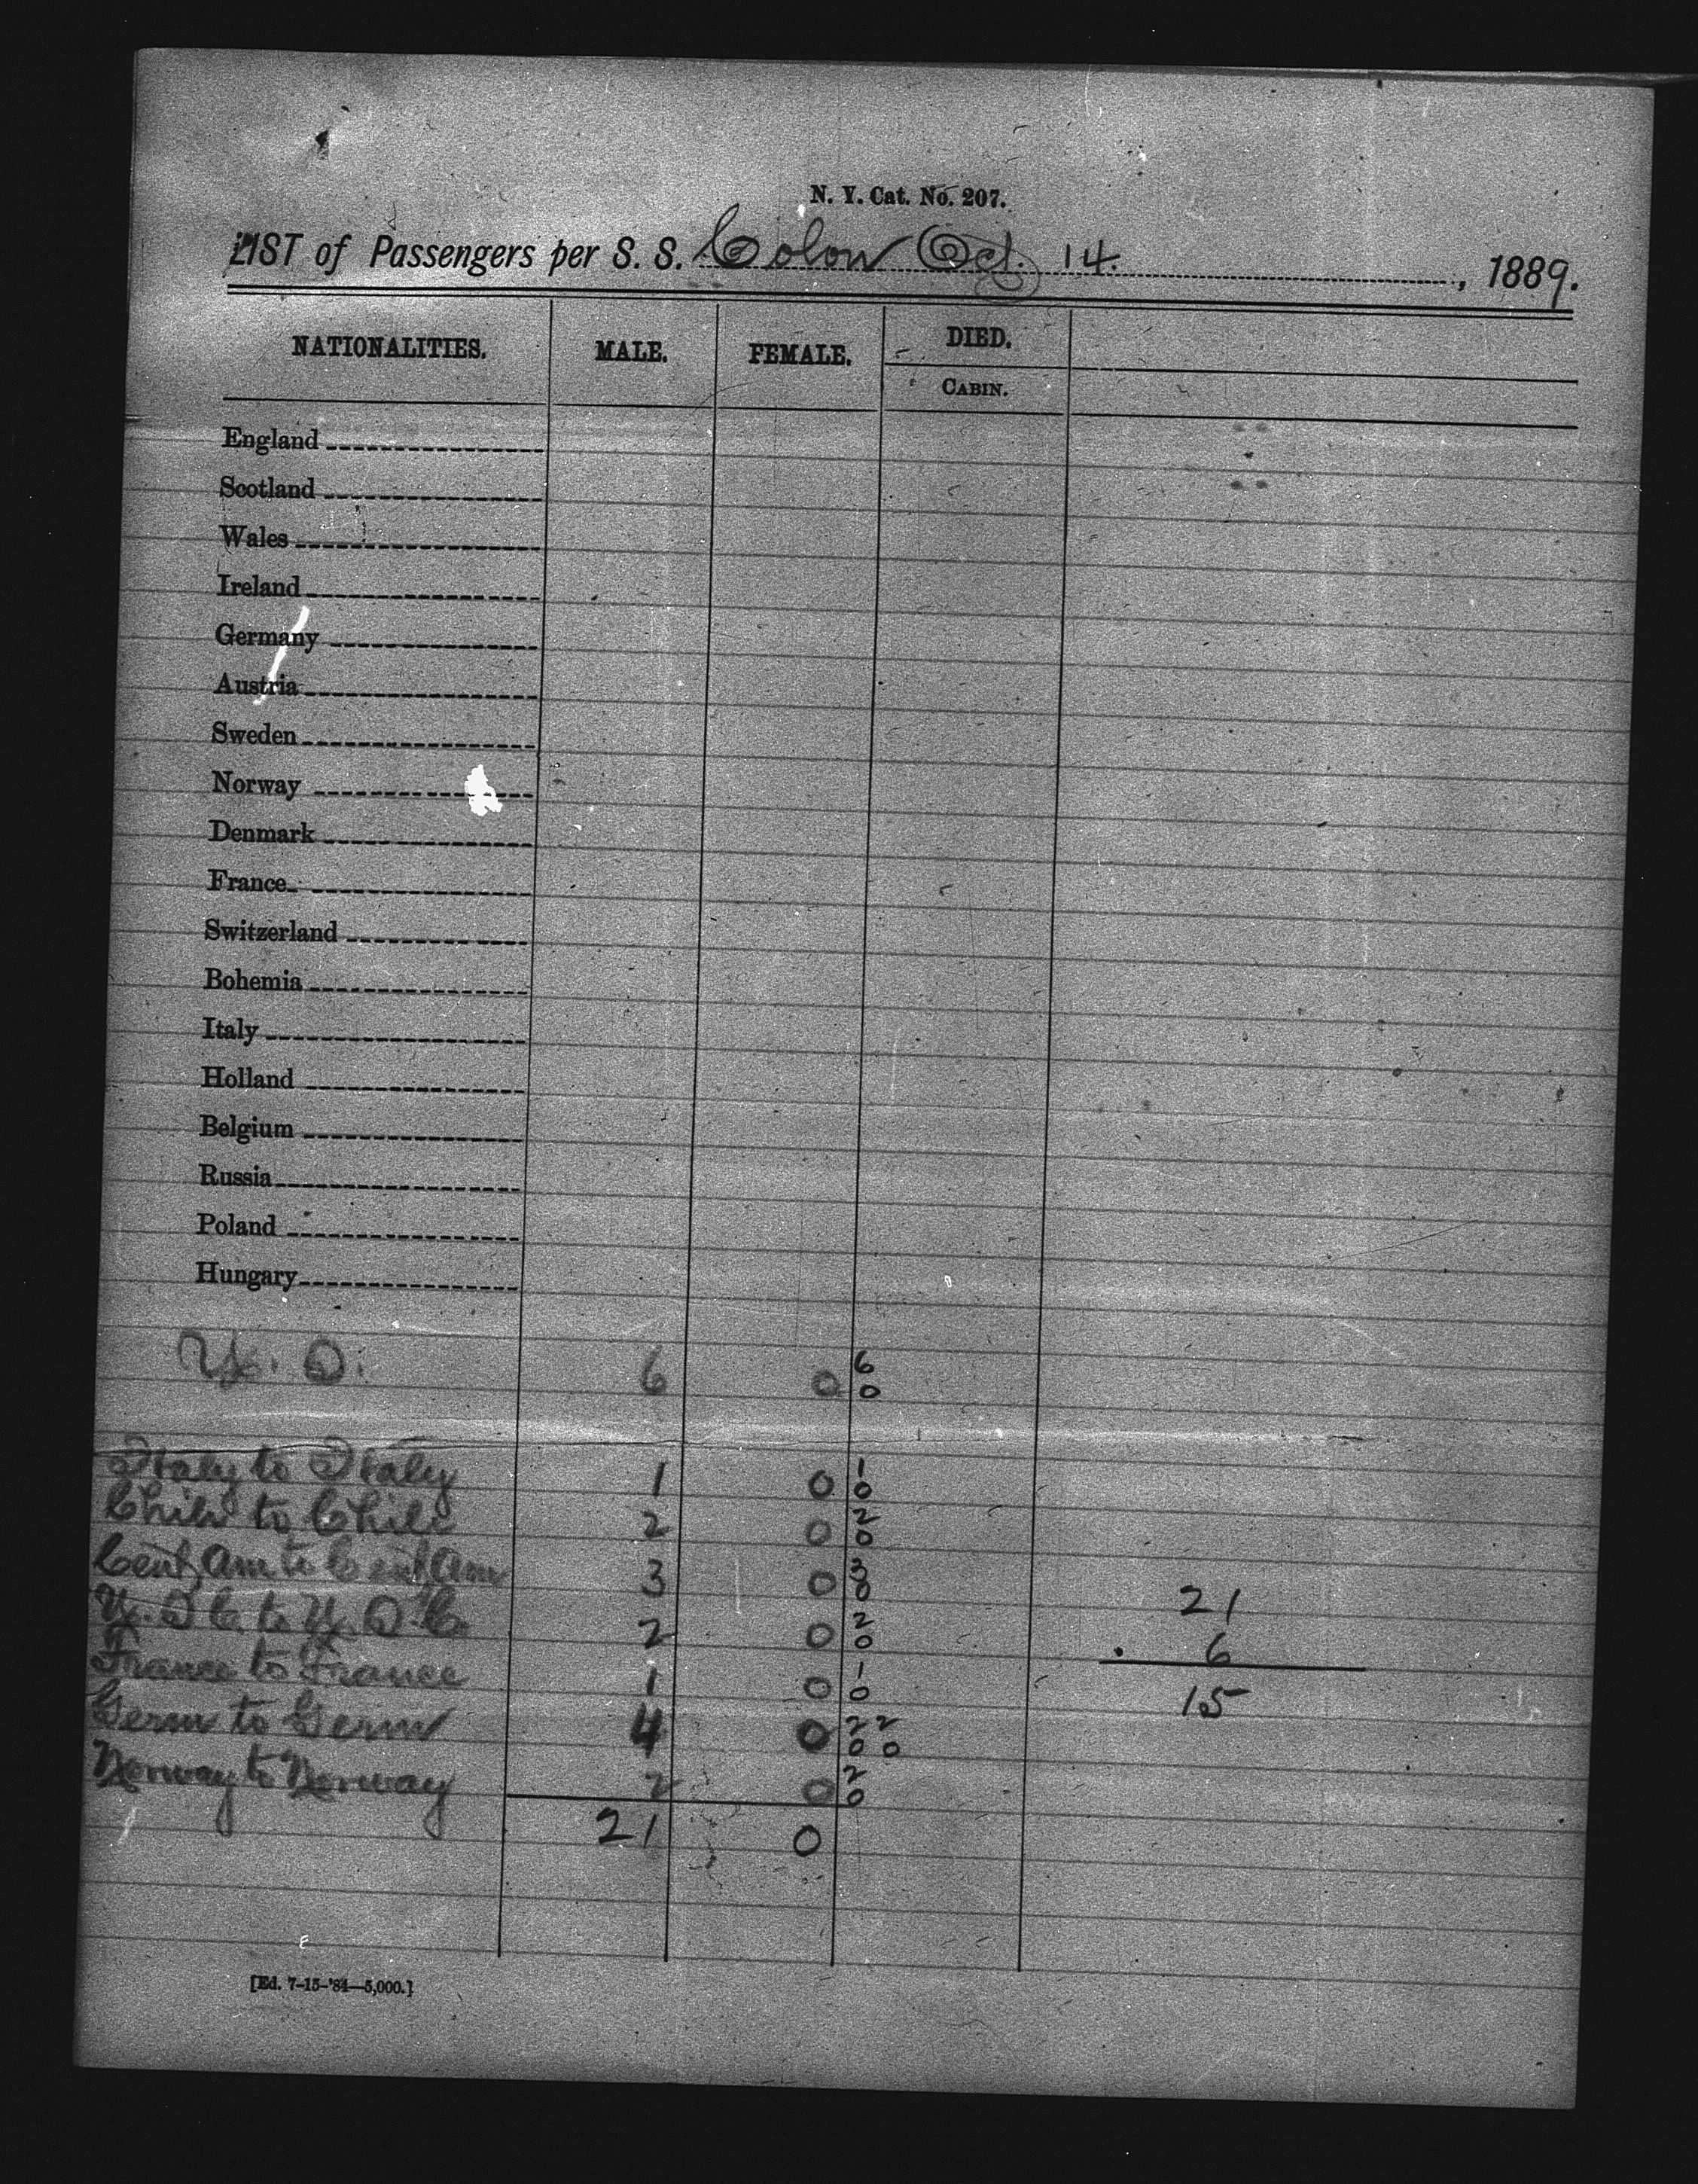 N. Y. Cat. No. 207.
LIST of Passengers per S. S. Colon Oct. 14. , 1889.
NATIONALITIES. MALE. FEMALE. DIED.
CABIN.
England
Scotland
Wales
Ireland
Germany
Austria
Sweden
Norway
Denmark
France
Switzerland
Bohemia
Italy
Holland
Belgium
Russia
Poland
Hungary
U. S. 6 0 6 0
Italy to Italy 1 0 1 0
Chili to Chili 2 0 2 0
Cent Am to Cent Am 3 0 3 0
21
U. S. C. to U. S. C. 2 0 2 0
6
France to France 1 0 1 0
15
Germ to Germ 4 0 2 2 0 0
Norway to Norway 2 0 2 0
21 0
[Ed. 7-15-'84—5,000.]